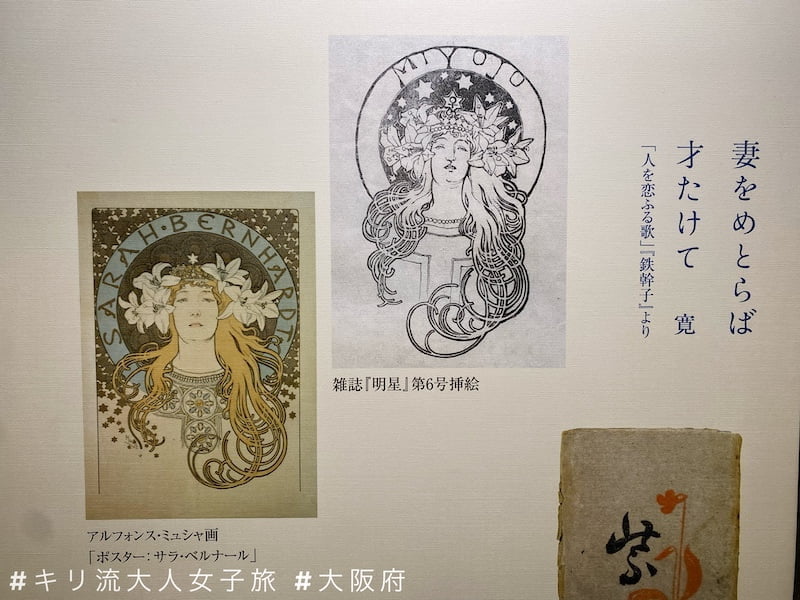 妻をめとらば
才たけて 寛
「人を恋ふる歌」『鉄幹子』より
MIYOJO
雑誌『明星』第6号挿絵
SARAH・BERNHARDT
アルフォンス・ミュシャ画
「ポスター：サラ・ベルナール」
紫
#キリ流大人女子旅 #大阪府